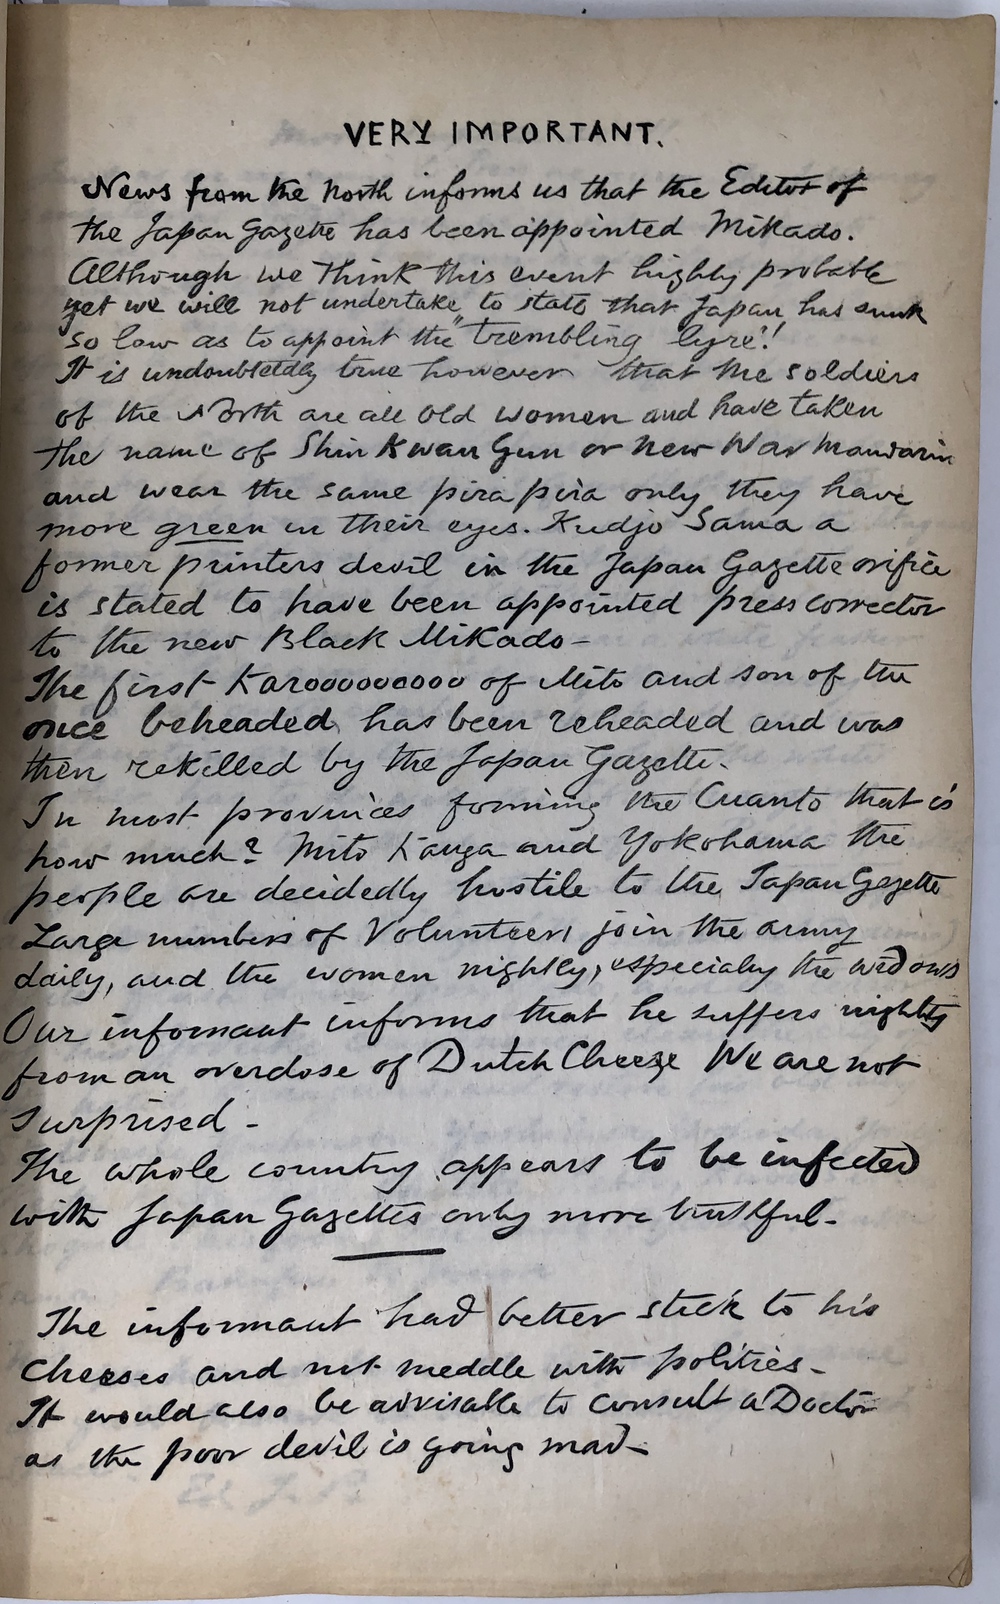 VERY IMPORTANT.
News from the North informs us that the Editor of
the Japan Gazette has been appointed Mikado.
Although we think this event highly probable
yet we will not undertake to state that Japan has sunk
so low as to appoint the "trembling lyre"!
It is undoubtetdly true however that the soldiers
of the North are all old women and have taken
the name of Shin Kwan Gun or new War Mandarin
and wear the same pira pira only they have
more green in their eyes. Kudjo Sama a
former printers devil in the Japan Gazette orifice
is stated to have been appointed press corrector
to the new Black Mikado -
The first Karooooooooo of Mito and son of the
once beheaded has been reheaded and was
then rekilled by the Japan Gazette.
In most provinces forming the Cuanto that is
how much? Mito Kanga and Yokohama the
people are decidedly hostile to the Japan Gazette
Large numbers of Volunteers join the army
daily, and the women nightly, especialy the widows
Our informant informs that he suffers nightly
from an overdose of Dutch Cheeze We are not
surprised -
The whole country appears to be infected
with Japan Gazettes only more truthful -
The informant had better stick to his
Cheeses and not meddle with politics -
It would also be advisable to consult a Doctor
as the poor devil is going mad -